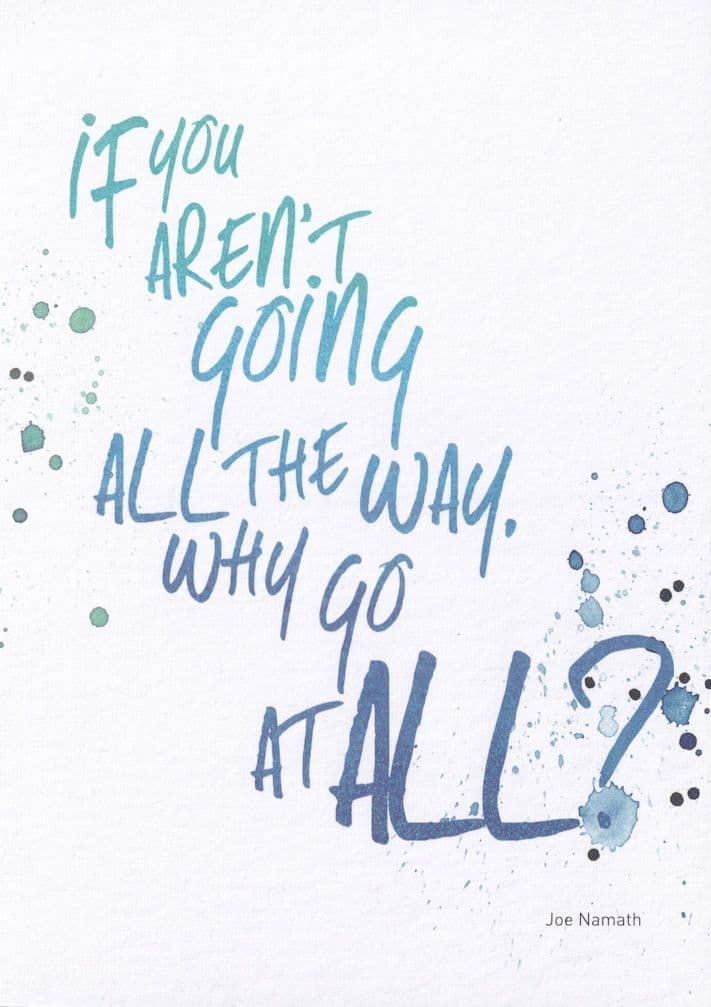 iF you
AREN'T
GOiNG
ALL THE WAY,
WHY GO
AT ALL?
Joe Namath